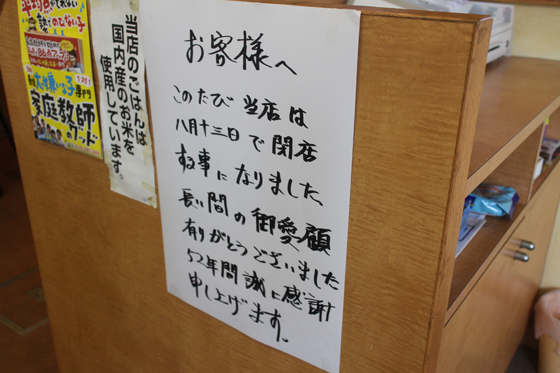 お客様へ
このたび当店は
八月十三日で閉店
する事になりました
長い間の御愛顧
有りがとうございました
52年間誠に感謝
申し上げます。
当店のごはんは
国内産のお米を
使用しています。
家庭教師の